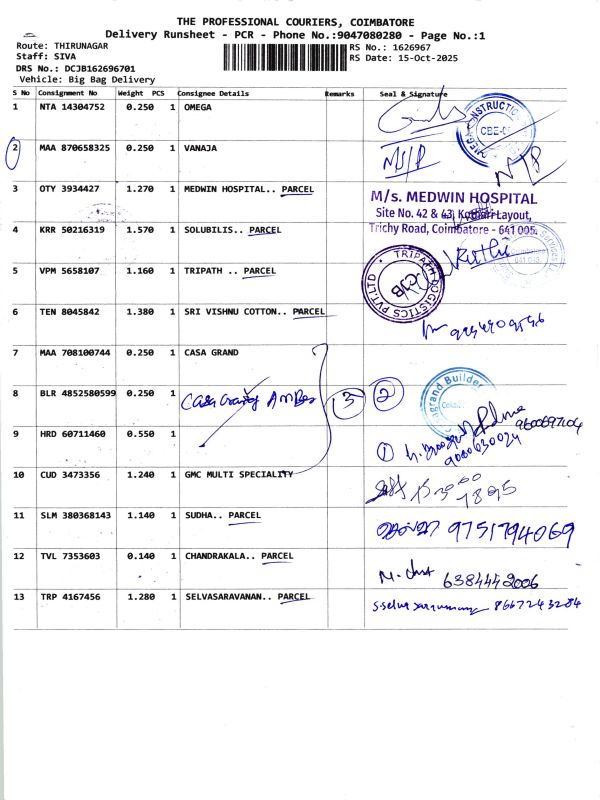 THE PROFESSIONAL COURIERS, COIMBATORE
Delivery Runsheet - PCR - Phone No.:9047080280 - Page No.:1
Route: THIRUNAGAR RS No.: 1626967
Staff: SIVA RS Date: 15-Oct-2025
DRS No.: DCJB162696701
Vehicle: Big Bag Delivery
S No Consignment No Weight PCS Consignee Details Remarks Seal & Signature
1 NTA 14304752 0.250 1 OMEGA
2 MAA 870658325 0.250 1 VANAJA
3 OTY 3934427 1.270 1 MEDWIN HOSPITAL.. PARCEL
M/s. MEDWIN HOSPITAL
Site No. 42 & 43, Kothari Layout,
Trichy Road, Coimbatore - 641 005.
4 KRR 50216319 1.570 1 SOLUBILIS.. PARCEL
5 VPM 5658107 1.160 1 TRIPATH .. PARCEL
TRIPATH LOGISTICS PVT.LTD
CJB
6 TEN 8045842 1.380 1 SRI VISHNU COTTON.. PARCEL
7 MAA 708100744 0.250 1 CASA GRAND
8 BLR 4852580599 0.250 1 3 2
9 HRD 60711460 0.550 1
9600697104
1
9080630024
10 CUD 3473356 1.240 1 GMC MULTI SPECIALITY
11 SLM 380368143 1.140 1 SUDHA.. PARCEL 9751794069
12 TVL 7353603 0.140 1 CHANDRAKALA.. PARCEL
6384442006
13 TRP 4167456 1.280 1 SELVASARAVANAN.. PARCEL 8667243284